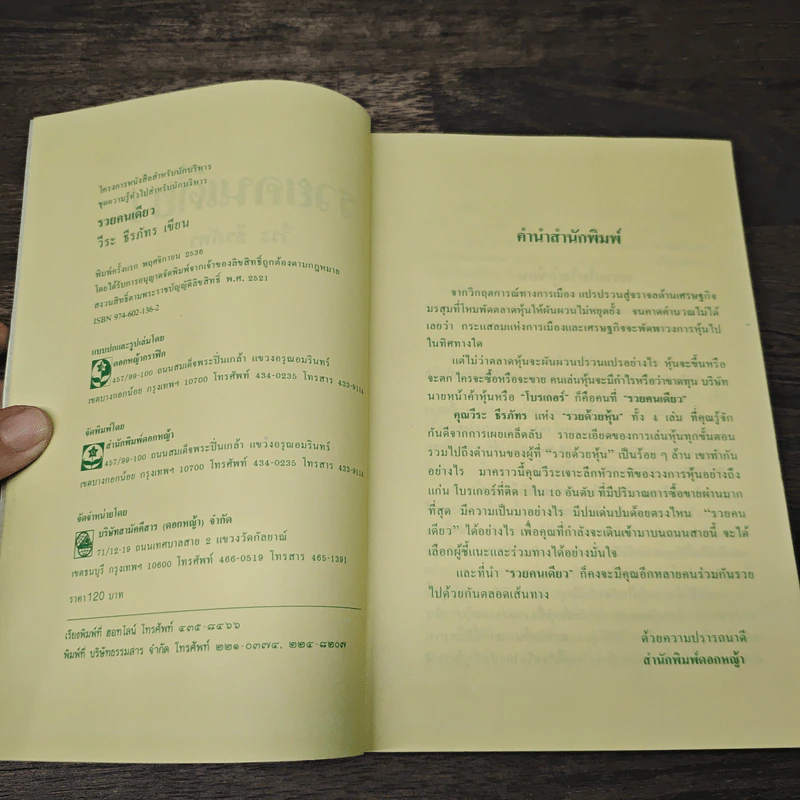 โครงการหนังสือสำหรับนักบริหาร
ชุดความรู้ทั่วไปสำหรับนักบริหาร
รวยคนเดียว
วีระ ธีรภัทร เขียน
พิมพ์ครั้งแรก พฤศจิกายน 2536
โดยได้รับการอนุญาตจัดพิมพ์จากเจ้าของลิขสิทธิ์ถูกต้องตามกฎหมาย
สงวนสิทธิ์ตามพระราชบัญญัติลิขสิทธิ์ พ.ศ. 2521
ISBN 974-602-136-2
แบบปกและรูปเล่มโดย
ดอกหญ้ากราฟิก
457/99-100 ถนนสมเด็จพระปิ่นเกล้า แขวงอรุณอมรินทร์
เขตบางกอกน้อย กรุงเทพฯ 10700 โทรศัพท์ 434-0235 โทรสาร 433-9114
จัดพิมพ์โดย
สำนักพิมพ์ดอกหญ้า
457/99-100 ถนนสมเด็จพระปิ่นเกล้า แขวงอรุณอมรินทร์
เขตบางกอกน้อย กรุงเทพฯ 10700 โทรศัพท์ 434-0235 โทรสาร 433-9114
จัดจำหน่ายโดย
บริษัทสามัคคีสาร (ดอกหญ้า) จำกัด
71/12-19 ถนนเทศบาลสาย 2 แขวงวัดกัลยาณ์
เขตธนบุรี กรุงเทพฯ 10600 โทรศัพท์ 466-0519 โทรสาร 465-1391
ราคา 120 บาท
เรียงพิมพ์ที่ ฮอทไลน์ โทรศัพท์ ๔๓๕-๘๔๖๖
พิมพ์ที่ บริษัทธรรมสาร จำกัด โทรศัพท์ ๒๒๑-๐๓๗๔, ๒๒๔-๘๒๐๗
คำนำสำนักพิมพ์
จากวิกฤตการณ์ทางการเมือง แปรปรวนสู่จราจลด้านเศรษฐกิจ
มรสุมที่โหมพัดตลาดหุ้นให้ผันผวนไม่หยุดยั้ง จนคาดคำนวณไม่ได้
เลยว่า กระแสลมแห่งการเมืองและเศรษฐกิจจะพัดพาวงการหุ้นไป
ในทิศทางใด
แต่ไม่ว่าตลาดหุ้นจะผันผวนปรวนแปรอย่างไร หุ้นจะขึ้นหรือ
จะตก ใครจะซื้อหรือจะขาย คนเล่นหุ้นจะมีกำไรหรือว่าขาดทุน บริษัท
นายหน้าค้าหุ้นหรือ “โบรเกอร์” ก็คือคนที่ “รวยคนเดียว”
คุณวีระ ธีรภัทร แห่ง “รวยด้วยหุ้น” ทั้ง 4 เล่ม ที่คุณรู้จัก
กันดีจากการเผยเคล็ดลับ รายละเอียดของการเล่นหุ้นทุกขั้นตอน
รวมไปถึงตำนานของผู้ที่ “รวยด้วยหุ้น” เป็นร้อย ๆ ล้าน เขาทำกัน
อย่างไร มาคราวนี้คุณวีระเจาะลึกหัวกะทิของวงการหุ้นอย่างถึง
แก่น โบรเกอร์ที่ติด 1 ใน 10 อันดับ ที่มีปริมาณการซื้อขายผ่านมาก
ที่สุด มีความเป็นมาอย่างไร มีปมเด่นปมด้อยตรงไหน “รวยคน
เดียว” ได้อย่างไร เพื่อคุณที่กำลังจะเดินเข้ามาบนถนนสายนี้ จะได้
เลือกผู้ชี้แนะและร่วมทางได้อย่างมั่นใจ
และที่นำ “รวยคนเดียว” ก็คงจะมีคุณอีกหลายคนร่วมกันรวย
ไปด้วยกันตลอดเส้นทาง
ด้วยความปรารถนาดี
สำนักพิมพ์ดอกหญ้า